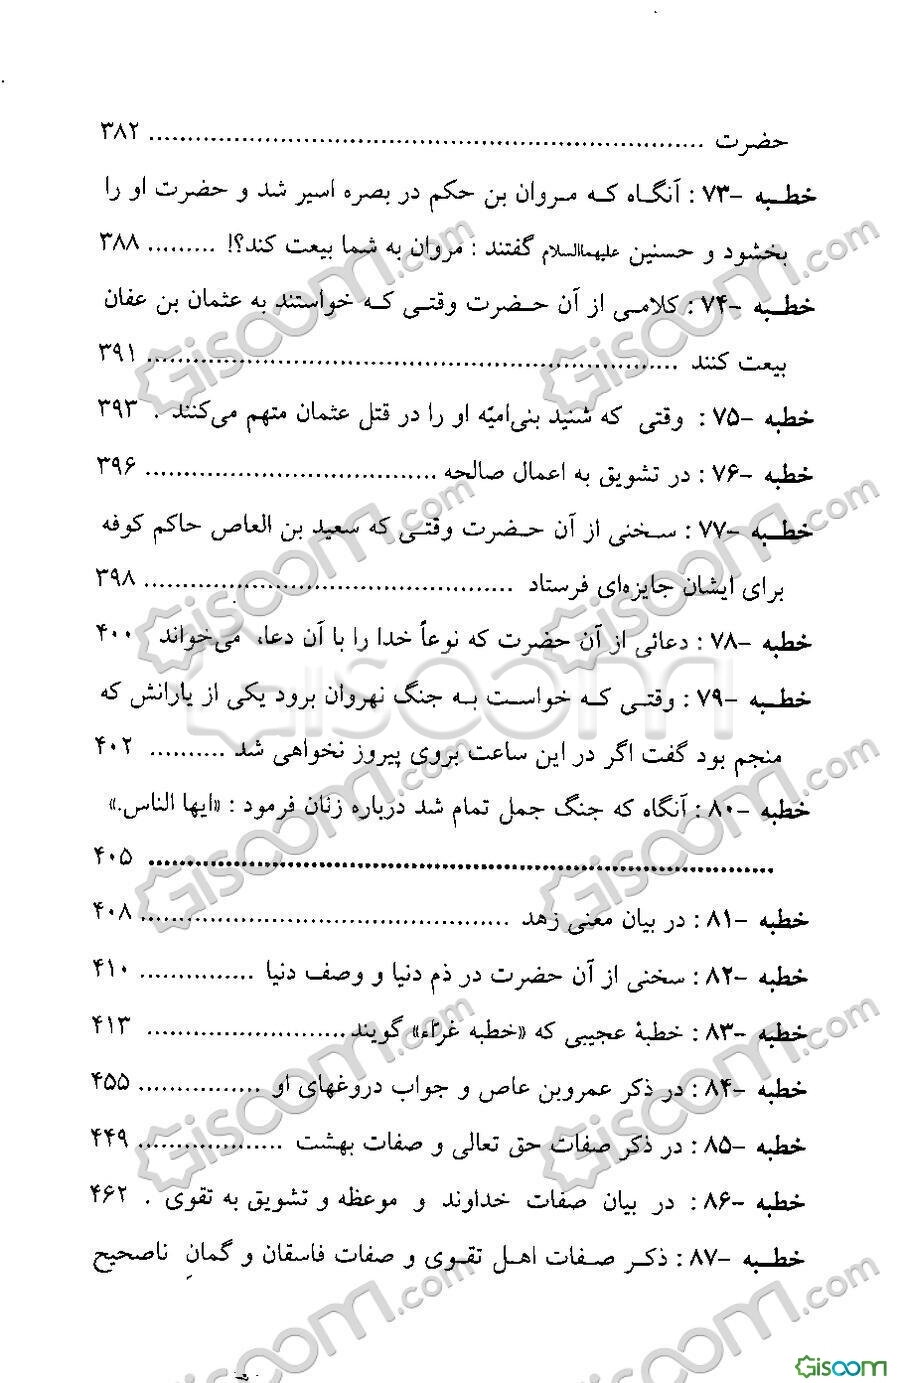 حضرت ........................................................................ ۳۸۲
خطبه -۷۳ : آنگاه که مروان بن حکم در بصره اسیر شد و حضرت او را
بخشود و حسنین علیهماالسلام گفتند : مروان به شما بیعت کند؟! ......... ۳۸۸
خطبه -۷۴ : کلامی از آن حضرت وقتی که خواستند به عثمان بن عفان
بیعت کنند .................................................................... ۳۹۱
خطبه -۷۵ : وقتی که شنید بنی‌امیّه او را در قتل عثمان متهم می‌کنند . ۳۹۳
خطبه -۷۶ : در تشویق به اعمال صالحه ..................................... ۳۹۶
خطبه -۷۷ : سخنی از آن حضرت وقتی که سعید بن العاص حاکم کوفه
برای ایشان جایزه‌ای فرستاد ............................................... ۳۹۸
خطبه -۷۸ : دعائی از آن حضرت که نوعاً خدا را با آن دعا، می‌خواند ۴۰۰
خطبه -۷۹ : وقتی که خواست به جنگ نهروان برود یکی از یارانش که
منجم بود گفت اگر در این ساعت بروی پیروز نخواهی شد .......... ۴۰۲
خطبه -۸۰ : آنگاه که جنگ جمل تمام شد درباره زنان فرمود : «ایها الناس.»
................................................................................ ۴۰۵
خطبه -۸۱ : در بیان معنی زهد ............................................... ۴۰۸
خطبه -۸۲ : سخنی از آن حضرت در ذم دنیا و وصف دنیا ............... ۴۱۰
خطبه -۸۳ : خطبهٔ عجیبی که «خطبه غرّاء» گویند......................... ۴۱۳
خطبه -۸۴ : در ذکر عمروبن عاص و جواب دروغهای او ................ ۴۵۵
خطبه -۸۵ : در ذکر صفات حق تعالی و صفات بهشت ................... ۴۴۹
خطبه -۸۶ : در بیان صفات خداوند و موعظه و تشویق به تقوی . ۴۶۲
خطبه -۸۷ : ذکر صفات اهل تقوی و صفات فاسقان و گمانِ ناصحیح
Gisoom